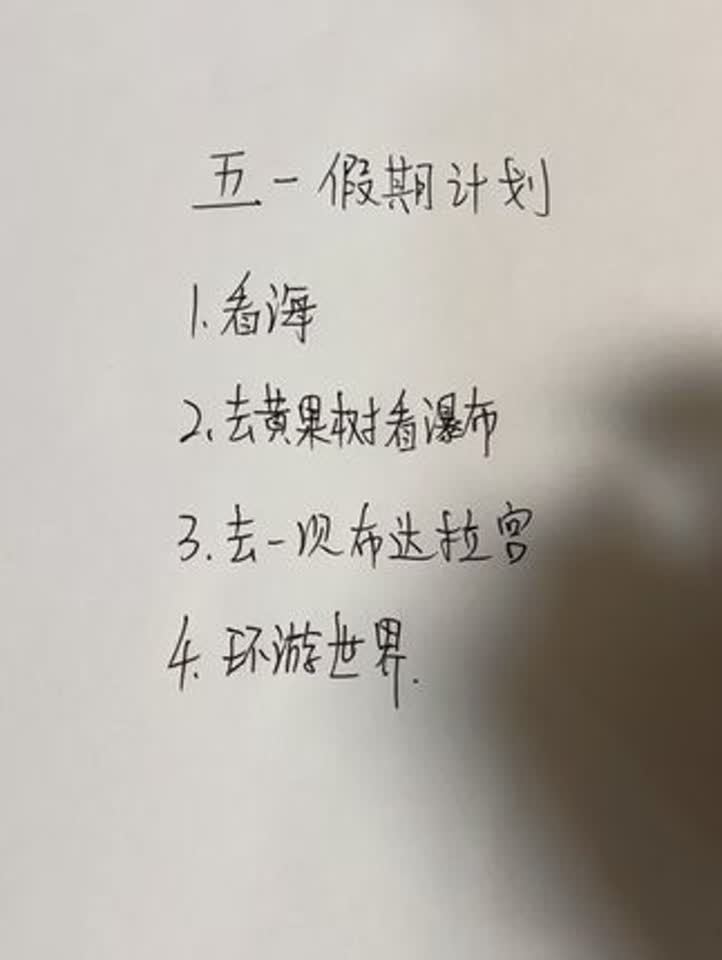 五一假期计划
1.看海
2.去黄果树看瀑布
3.去一次布达拉宫
4.环游世界.